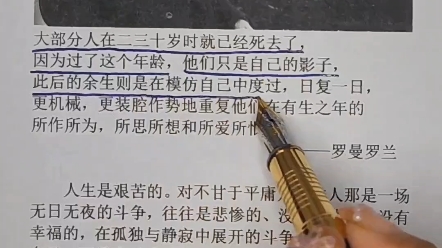 大部分人在二三十岁时就已经死去了，
因为过了这个年龄，他们只是自己的影子，
此后的余生则是在模仿自己中度过，日复一日，
更机械，更装腔作势地重复他们在有生之年的
所作所为，所思所想和所爱所
——罗曼罗兰
人生是艰苦的。对不甘于平庸 人那是一场
无日无夜的斗争，往往是悲惨的、没 没有
幸福的，在孤独与静寂中展开的斗